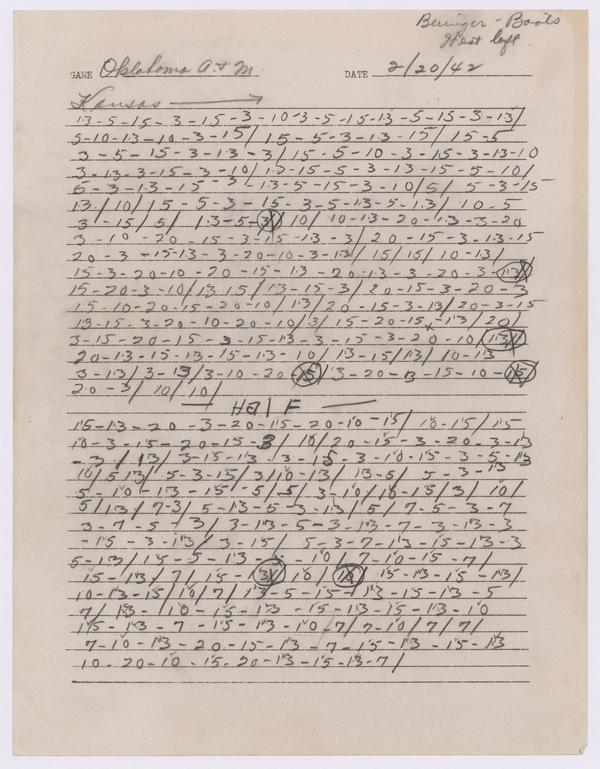 Beringer - Boots
West left
GAME Oklahoma A. & M. DATE 2/20/42
Kansas
13-5-15-3-15-3-10-3-5-15-13-5-15-3-13/
5-10-13-10-3-15/15-5-3-13-15/15-5
3-5-15-3-13-3/15-5-10-3-15-3-13-10
3-13-3-15-3-10/13-15-5-3-13-15-5-10/
5-3-13-15-3-13-5-15-3-10/5/5-3-15
13/10/15-5-3-15-3-5-13-5-13/10-5
3-15/5/13-5-3/10/10-13-20-13-3-20
3-10-20-15-3-15-13-3/20-15-3-13-15
20-3-15-13-3-20-10-3-13/15/15/10-13/
15-3-20-10-20-15-13-20-13-3-20-3-13/
15-20-3-10/13 15/13-15-3/20-15-3-20-3
15-10-20-15-20-10/13/20-15-3-13/20-3-15
13-15-3-20-10-20-10/3/15-20-15-13/20/
3-15-20-15-3-15-13-3-15-3-20-10/13/
20-13-15-13-15-13-10/13-15/13/10-13
3-13/3-13/3-10-20-15/3-20-13-15-10-15/
20-3/10/10/
Half
15-13-20-3-20-15-20-10-15/10-15/15
10-3-15-20-15-3/10/20-15-3-20-3-13
-3/13/3-15-13-3-15-3-10-15-3-5-13
10/5 13/5-3-15/3/10-13/13-5/5-3-13
5-10-13-15-5/5/3-10/10-15/3/10/
5/13/7-3/5-13-5-3-13/5/7-5-3-7
3-7-5-3/3-13-5-3-13-7-3-13-3
-15-3-13/3-15/5-3-7-13-15-13-3
5-13/15-5-13-3-10/7-10-15-7/
15-13/7/15-3/10/10/15-13-15-13/
10-13-15/10/7/13-5-15-13-15-13-5
7/13-10-15-13-15-13-15-13-10
15-13-7-15-13-10-7/7-10/7/7/
7-10-13-20-15-13-7-15-13-15-13
10-20-10-15-20-13-15-13-7/